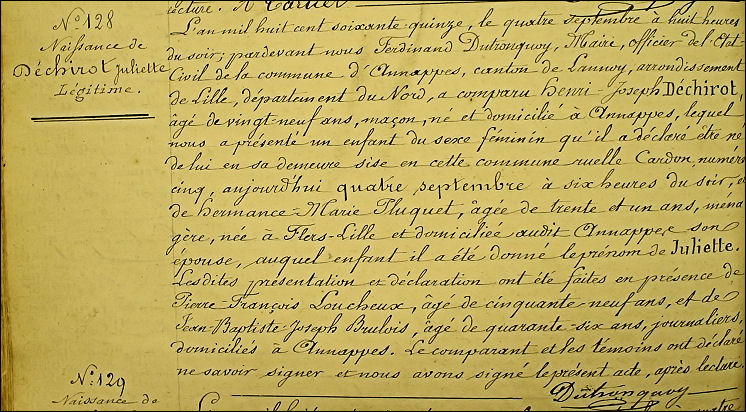 lecture.
N.° 128
Naissance de
Déchirot Juliette
Légitime.
L'an mil huit cent soixante quinze, le quatre septembre à huit heures
du soir, pardevant nous Ferdinand Dutronquoy, Maire, officier de l'Etat
Civil de la commune d'Annappes, canton de Lannoy, arrondissement
de Lille, département du Nord, a comparu Henri-Joseph Déchirot,
âgé de vingt-neuf ans, maçon, né et domicilié à Annappes, lequel
nous a présenté un enfant du sexe féminin qu'il a déclaré être né
de lui en sa demeure sise en cette commune ruelle Cardon, numéro
cinq, aujourd'hui quatre septembre à six heures du soir, et
de Hermance-Marie Pluquet, âgée de trente et un ans, ména
gère, née à Flers-Lille et domiciliée audit Annappes son
épouse, auquel enfant il a été donné le prénom de Juliette.
Lesdites présentation et déclaration ont été faites en présence de
Pierre François Loucheux, âgé de cinquante-neuf ans, et de
Jean-Baptiste-Joseph Brulois, âgé de quarante-six ans, journaliers,
domiciliés à Annappes. Le comparant et les témoins ont déclaré
ne savoir signer et nous avons signé le présent acte, après lecture.
Dutronquoy
N.° 129
Naissance de